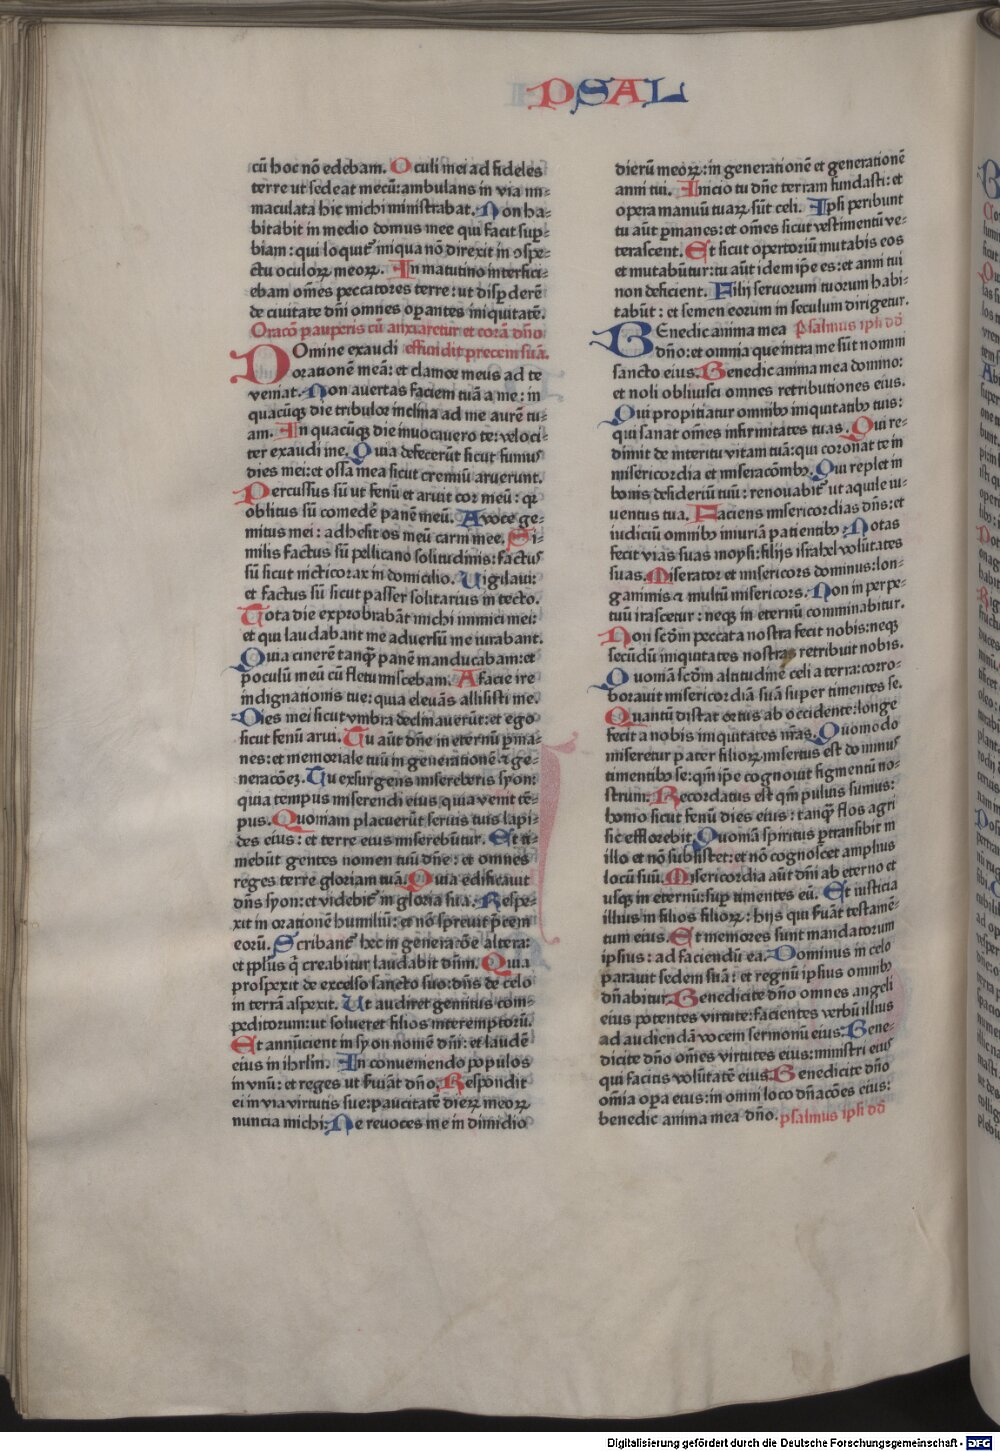 PSAL
cū hoc nō edebam. Oculi mei ad fideles
terre ut sedeat mecū: ambulans in via im-
maculata hic michi ministrabat. Non ha-
bitabit in medio domus mee qui facit sup̄-
biam: qui loquit᷑ iniqua nō direxit in ꝯspe-
ctu oculoꝝ meoꝝ. In matutino interfici-
ebam om̄es peccatores terre: ut disꝑderē
de ciuitate dn̄i omnes oꝑantes iniquitatē.
Oracō pauperis cū anxiaretur et corā dn̄o
DOmine exaudi effundit precem suā.
orationē meā: et clamor meus ad te
veniat. Non auertas faciem tuā a me: in
quacūqꝫ die tribulor inclina ad me aurē tu-
am. In quacūqꝫ die inuocauero te: veloci-
ter exaudi me. Quia defecerūt sicut fumus
dies mei: et ossa mea sicut cremiū aruerunt.
Percussus sū ut fenū et aruit cor meū: qꝛ
oblitus sū comedē panē meū. A voce ge-
mitus mei: adhesit os meū carni mee. Si-
milis factus sū pellicano solitudinis: factus
sū sicut nicticorax in domicilio. Uigilaui:
et factus sū sicut passer solitarius in tecto.
Tota die exprobrabāt michi inimici mei:
et qui laudabant me aduersū me iurabant.
Quia cinerē tanqꝫ panē manducabam: et
poculū meū cū fletu miscebam. A facie ire
indignationis tue: quia eleuās allisisti me.
Dies mei sicut vmbra declinauerūt: et ego
sicut fenū arui. Tu aūt dn̄e in eternū ꝑma-
nes: et memoriale tuū in generationē ⁊ ge-
neracōeꝫ. Tu exsurgens misereberis syon:
quia tempus miserendi eius quia venit tē-
pus. Quoniam placuerūt seruis tuis lapi-
des eius: et terre eius miserebūtur. Et ti-
mebūt gentes nomen tuū dn̄e: et omnes
reges terre gloriam tuā. Quia edificauit
dn̄s syon: et videbit᷑ in gloria sua. Respe-
xit in orationē humiliū: et nō spreuit p̄cem
eorū. Scribant᷑ hec in generacōe altera:
et ppl̄us q̄ creabitur laudabit dn̄m. Quia
prospexit de excelso sancto suo: dn̄s de celo
in terrā aspexit. Ut audiret gemitus com-
peditorum: ut solueret filios interemptorū.
Et annūcient in syon nomē dn̄i: et laudē
eius in ihrl̄m. In conueniendo populos
in vnū: et reges ut ſuiāt dn̄o. Respondit
ei in via virtutis sue: paucitatē dierꝝ meoꝝ
nuncia michi. Ne reuoces me in dimidio
dierū meoꝝ: in generationē et generationē
anni tui. Inicio tu dn̄e terram fundasti: et
opera manuū tuaꝝ sūt celi. Ipsi peribunt
tu aūt ꝑmanes: et om̄es sicut vestimentū ve-
terascent. Et sicut opertoriū mutabis eos
et mutabūtur: tu aūt idem ip̄e es: et anni tui
non deficient. Filij seruorum tuorum habi-
tabūt: et semen eorum in seculum dirigetur.
BEnedic anima mea Psalmus ipsi dd
dn̄o: et omnia que intra me sūt nomini
sancto eius. Benedic anima mea domino:
et noli obliuisci omnes retributiones eius.
Qui propitiatur omnibꝫ iniquitatibꝫ tuis:
qui sanat om̄es infirmitates tuas. Qui re-
dimit de interitu vitam tuā: qui coronat te in
misericordia et miseracōnibꝫ. Qui replet in
bonis desideriū tuū: renouabit᷑ ut aquile iu-
uentus tua. Faciens misericordias dn̄s: et
iudiciū omnibꝫ iniuriā patientibꝫ. Notas
fecit vias suas moysi: filijs isrāhel volūtates
suas. Miserator et misericors dominus: lon-
ganimis ⁊ multū misericors. Non in perpe-
tuū irascetur: neqꝫ in eternū comminabitur.
Non scd̄m peccata nostra fecit nobis: neqꝫ
secūdū iniquitates nostras retribuit nobis.
Quoniā scd̄m altitudinē celi a terra: corro-
borauit misericordiā suā super timentes se.
Quantū distat ortus ab occidente: longe
fecit a nobis iniquitates nr̄as. Quomodo
miseretur pater filioꝝ misertus est dominus
timentibꝫ se: qm̄ ip̄e cognouit figmentū no-
strum. Recordatus est qm̄ puluis sumus:
homo sicut fenū dies eius: tanqꝫ flos agri
sic efflorebit. Quoniā spiritus ꝑtransibit in
illo et nō subsistet: et nō cognoscet amplius
locū suū. Misericordia aūt dn̄i ab eterno et
usqꝫ in eternū: suꝑ timentes eū. Et iusticia
illius in filios filioꝝ: hijs qui ſuāt testamē-
tum eius. Et memores sunt mandatorum
ipsius: ad faciendū ea. Dominus in celo
parauit sedem suā: et regnū ipsius omnibꝫ
dn̄abitur. Benedicite dn̄o omnes angeli
eius potentes virtute: facientes verbū illius
ad audiendā vocem sermonū eius. Bene-
dicite dn̄o om̄es virtutes eius: ministri eius
qui facitis volūtatē eius. Benedicite dn̄o
om̄ia oꝑa eius: in omni loco dn̄acōes eius:
benedic anima mea dn̄o. psalmus ipsi dd
Digitalisierung gefördert durch die Deutsche Forschungsgemeinschaft - DFG